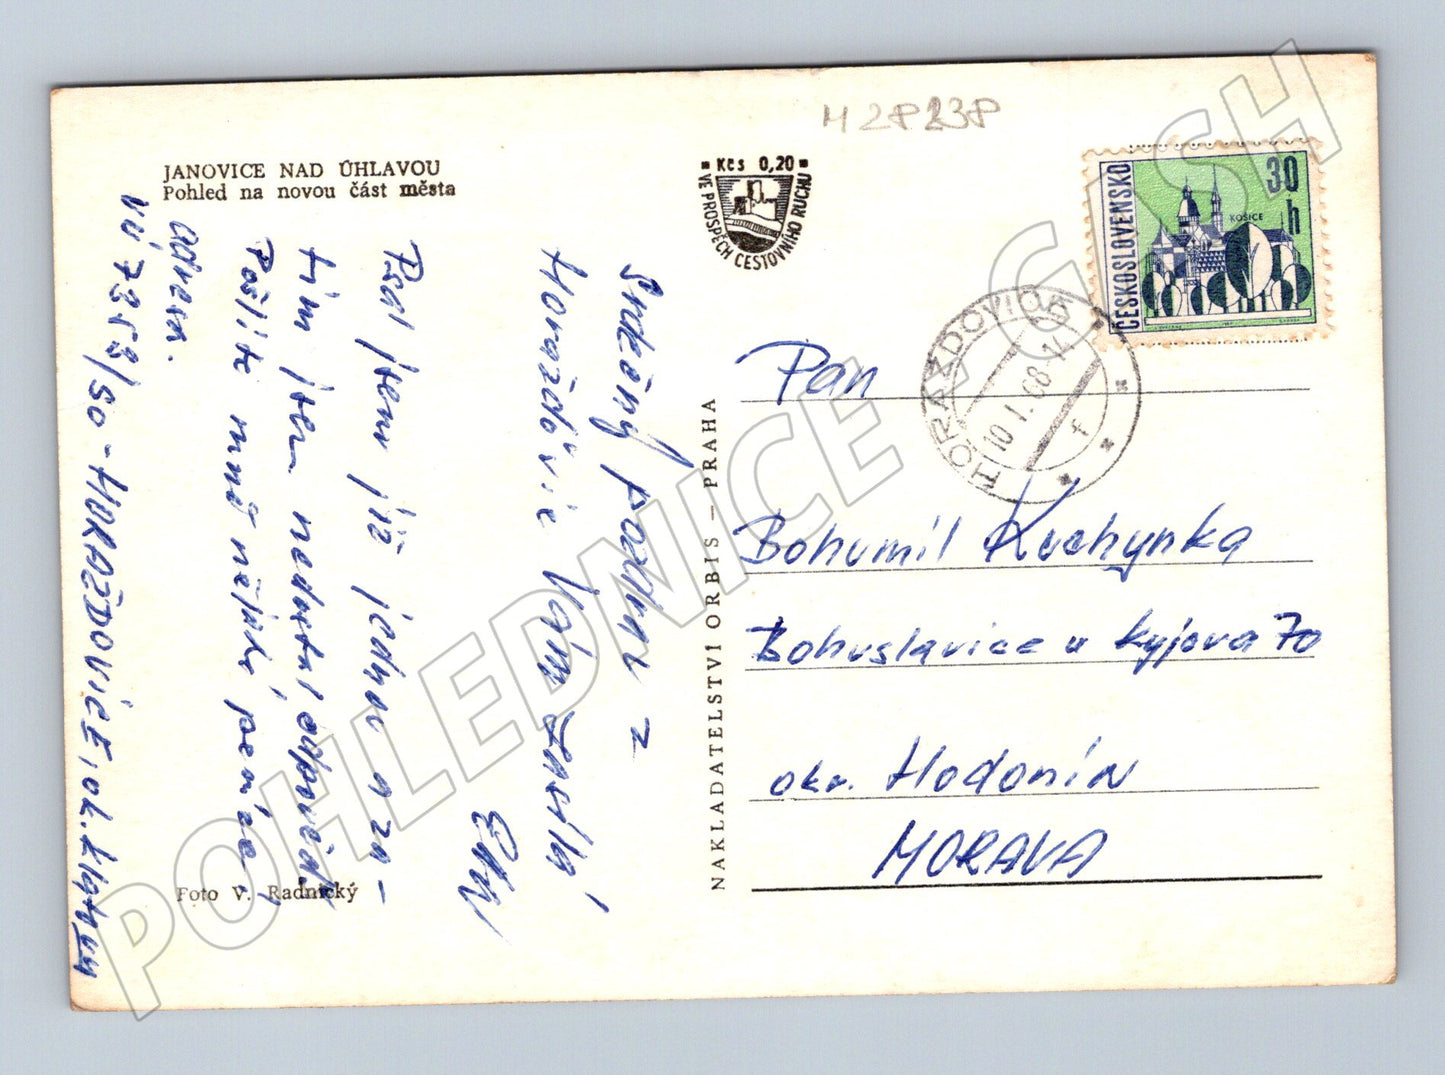 M 28238
JANOVICE NAD ÚHLAVOU
Pohled na novou část města
Kčs 0,20
VE PROSPĚCH CESTOVNÍHO RUCHU
ČESKOSLOVENSKO
30 h
KOŠICE
HORAŽDOVICE
10.I.68-14
f
Srdečný pozdrav z
Horažďovic Vám zasílá
Psal jsem již jednou a za-
tím jsem nedostal odpověď.
Pošlite mně nějaké peníze,
adresa.
vú 7353/SO - HORAŽĎOVICE, ok. Klatovy
Pan
Bohumil Kuchynka
Bohuslavice u Kyjova 70
okr. Hodonín
MORAVA
NAKLADATELSTVÍ ORBIS — PRAHA
Foto V. Radnický
POHLEDNICE G SH